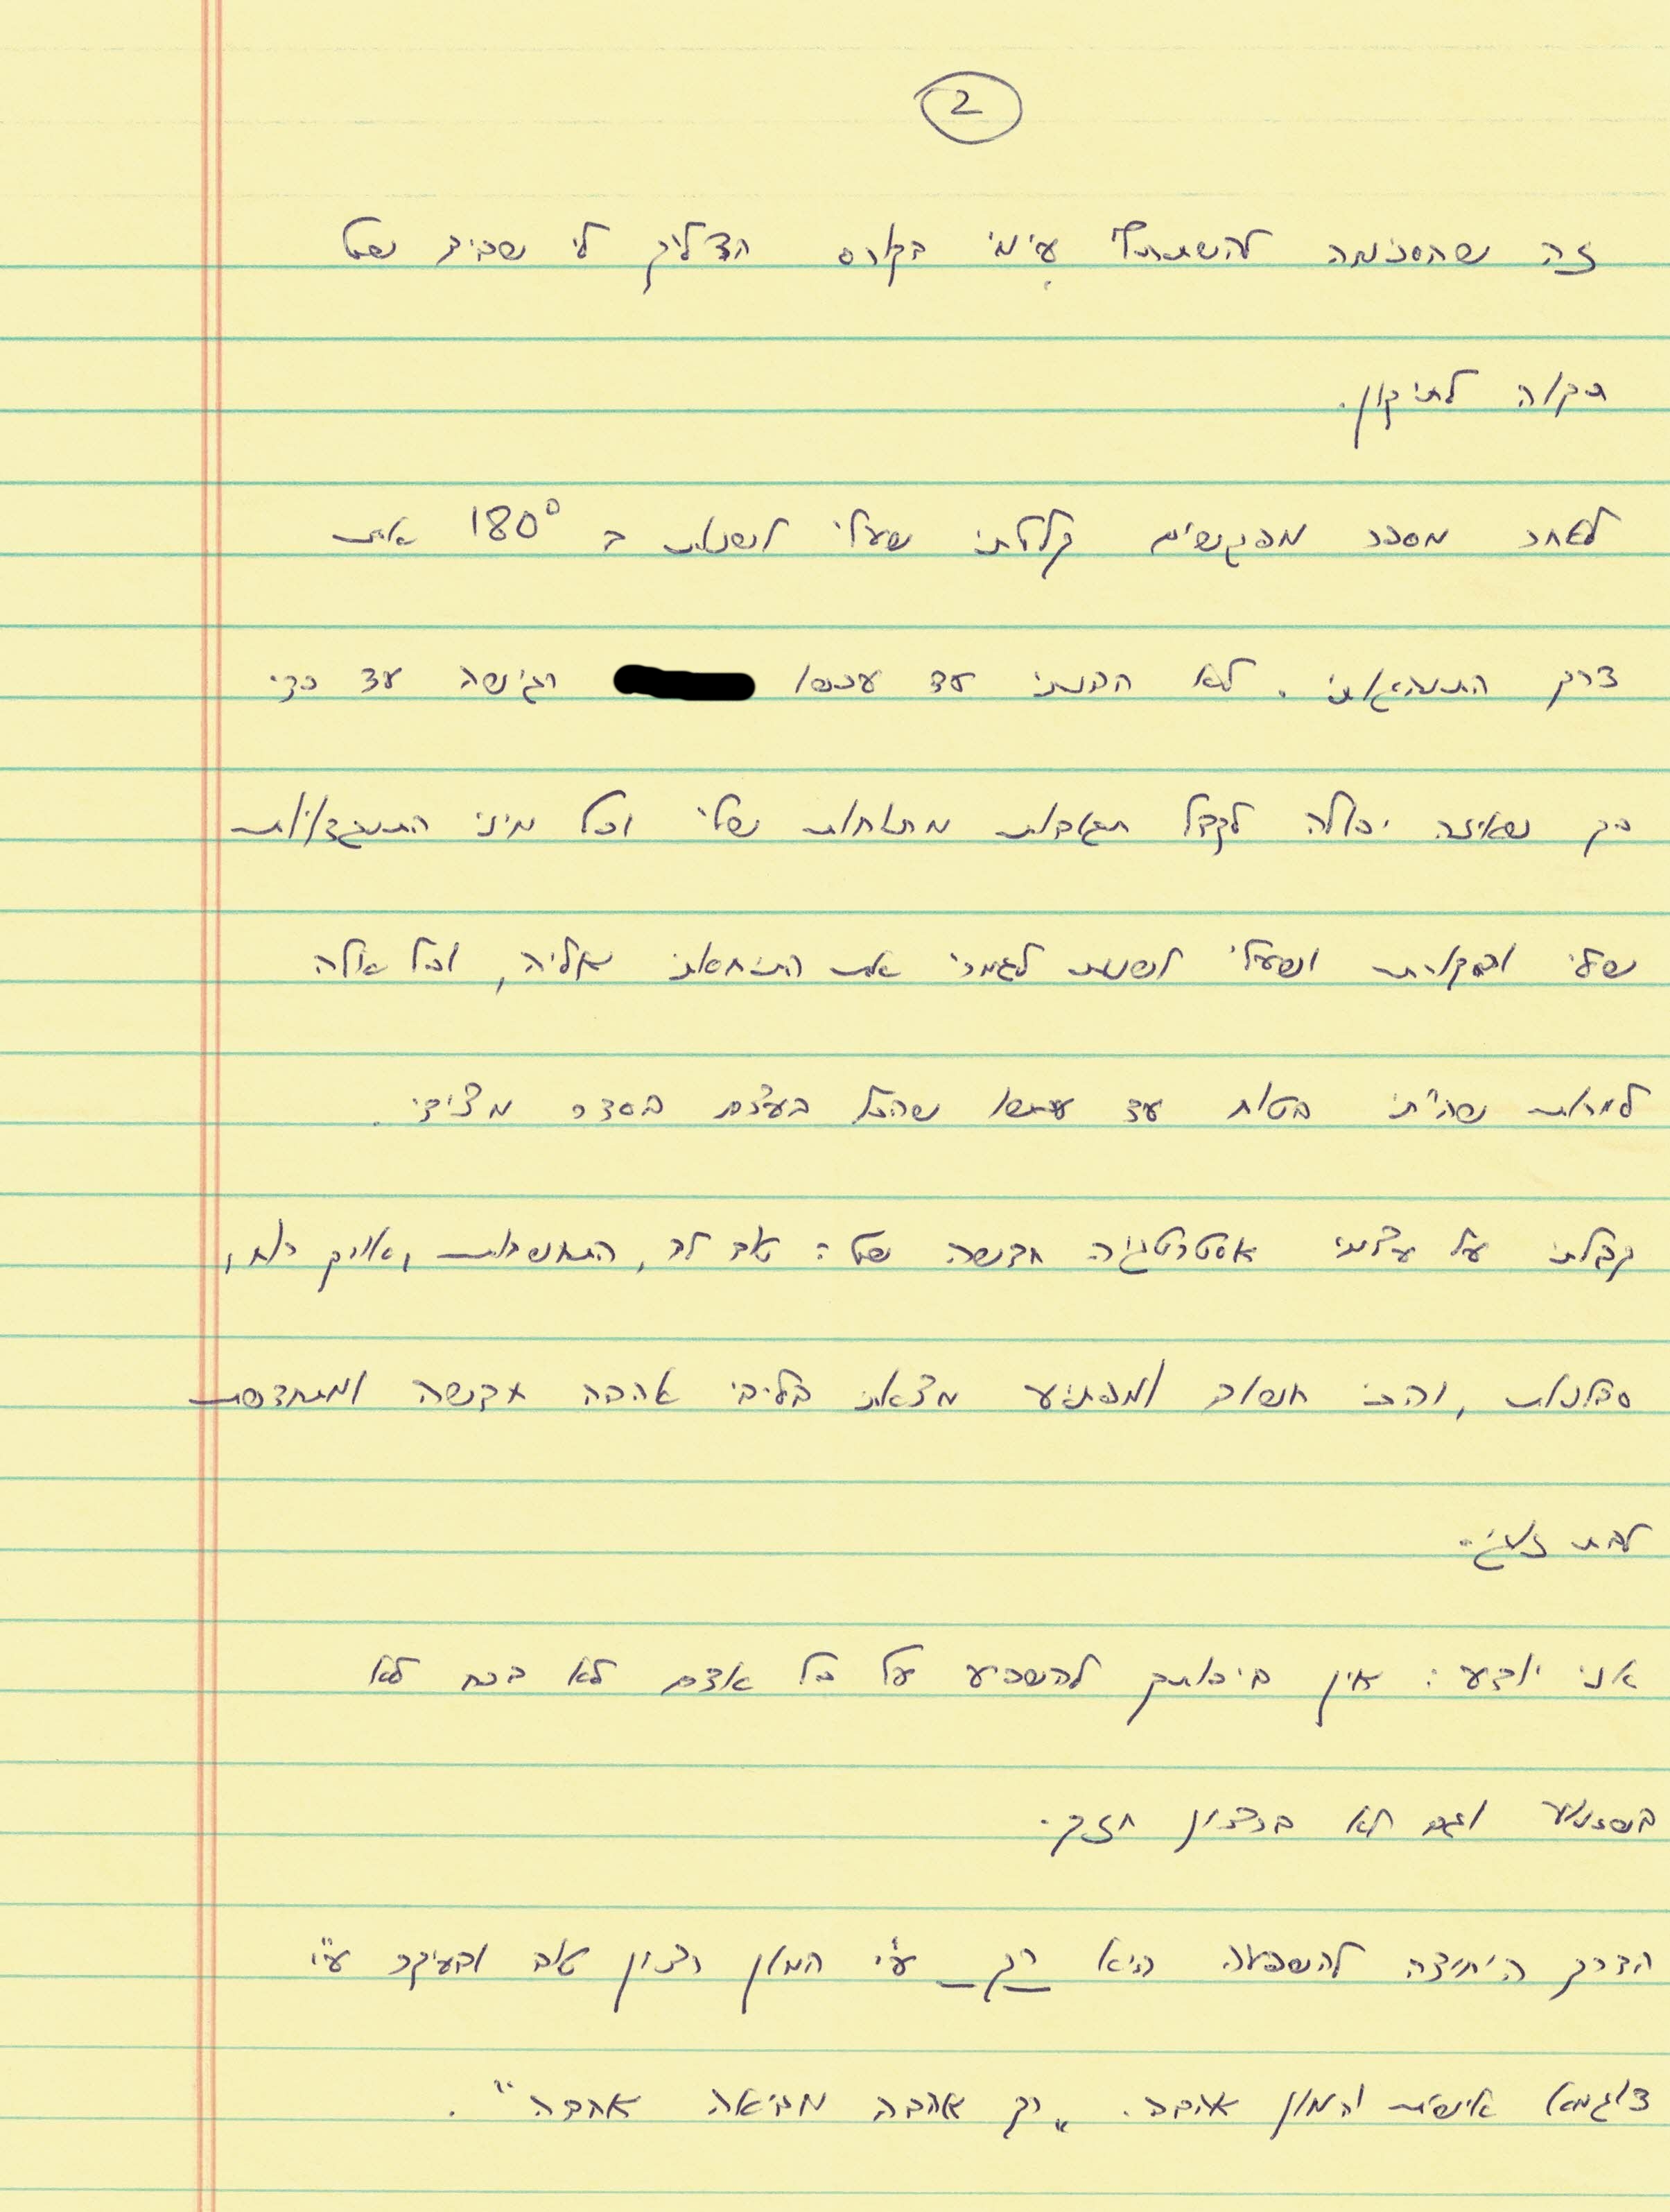 2
זה שהסכימה להשתתף עימי בקורס הדליק לי שביב של
תקוה לתיקון.
לאחר מספר מפגשים קלטתי שעלי לשנות ב 180° את
דרך התנהגותי. לא הבנתי עד עכשו רגישה עד כדי
כך שאינה יכולה לקבל תגובות מתוחות שלי וכל מיני התנגדויות
שלי ובקורות ושעלי לשנות לגמרי את התיחסותי אליה, וכל אלה
למרות שהייתי בטוח עד עכשו שהכל בעצם בסדר מצידי.
קבלתי על עצמי אסטרטגיה חדשה של: טוב לב, התחשבות, אורך רוח,
סבלנות, והכי חשוב ומפתיע מצאתי בליבי אהבה חדשה ומתחדשת
לבת זוגי.
אני יודע: אין ביכולתך להשפיע על כל אדם לא בכח לא
בשכנוע וגם לא ברצון חזק.
הדרך היחידה להשפעה היא רק ע"י המון רצון טוב ובעיקר ע"י
דוגמא אישית והמון אהבה. "רק אהבה מביאה אהבה".